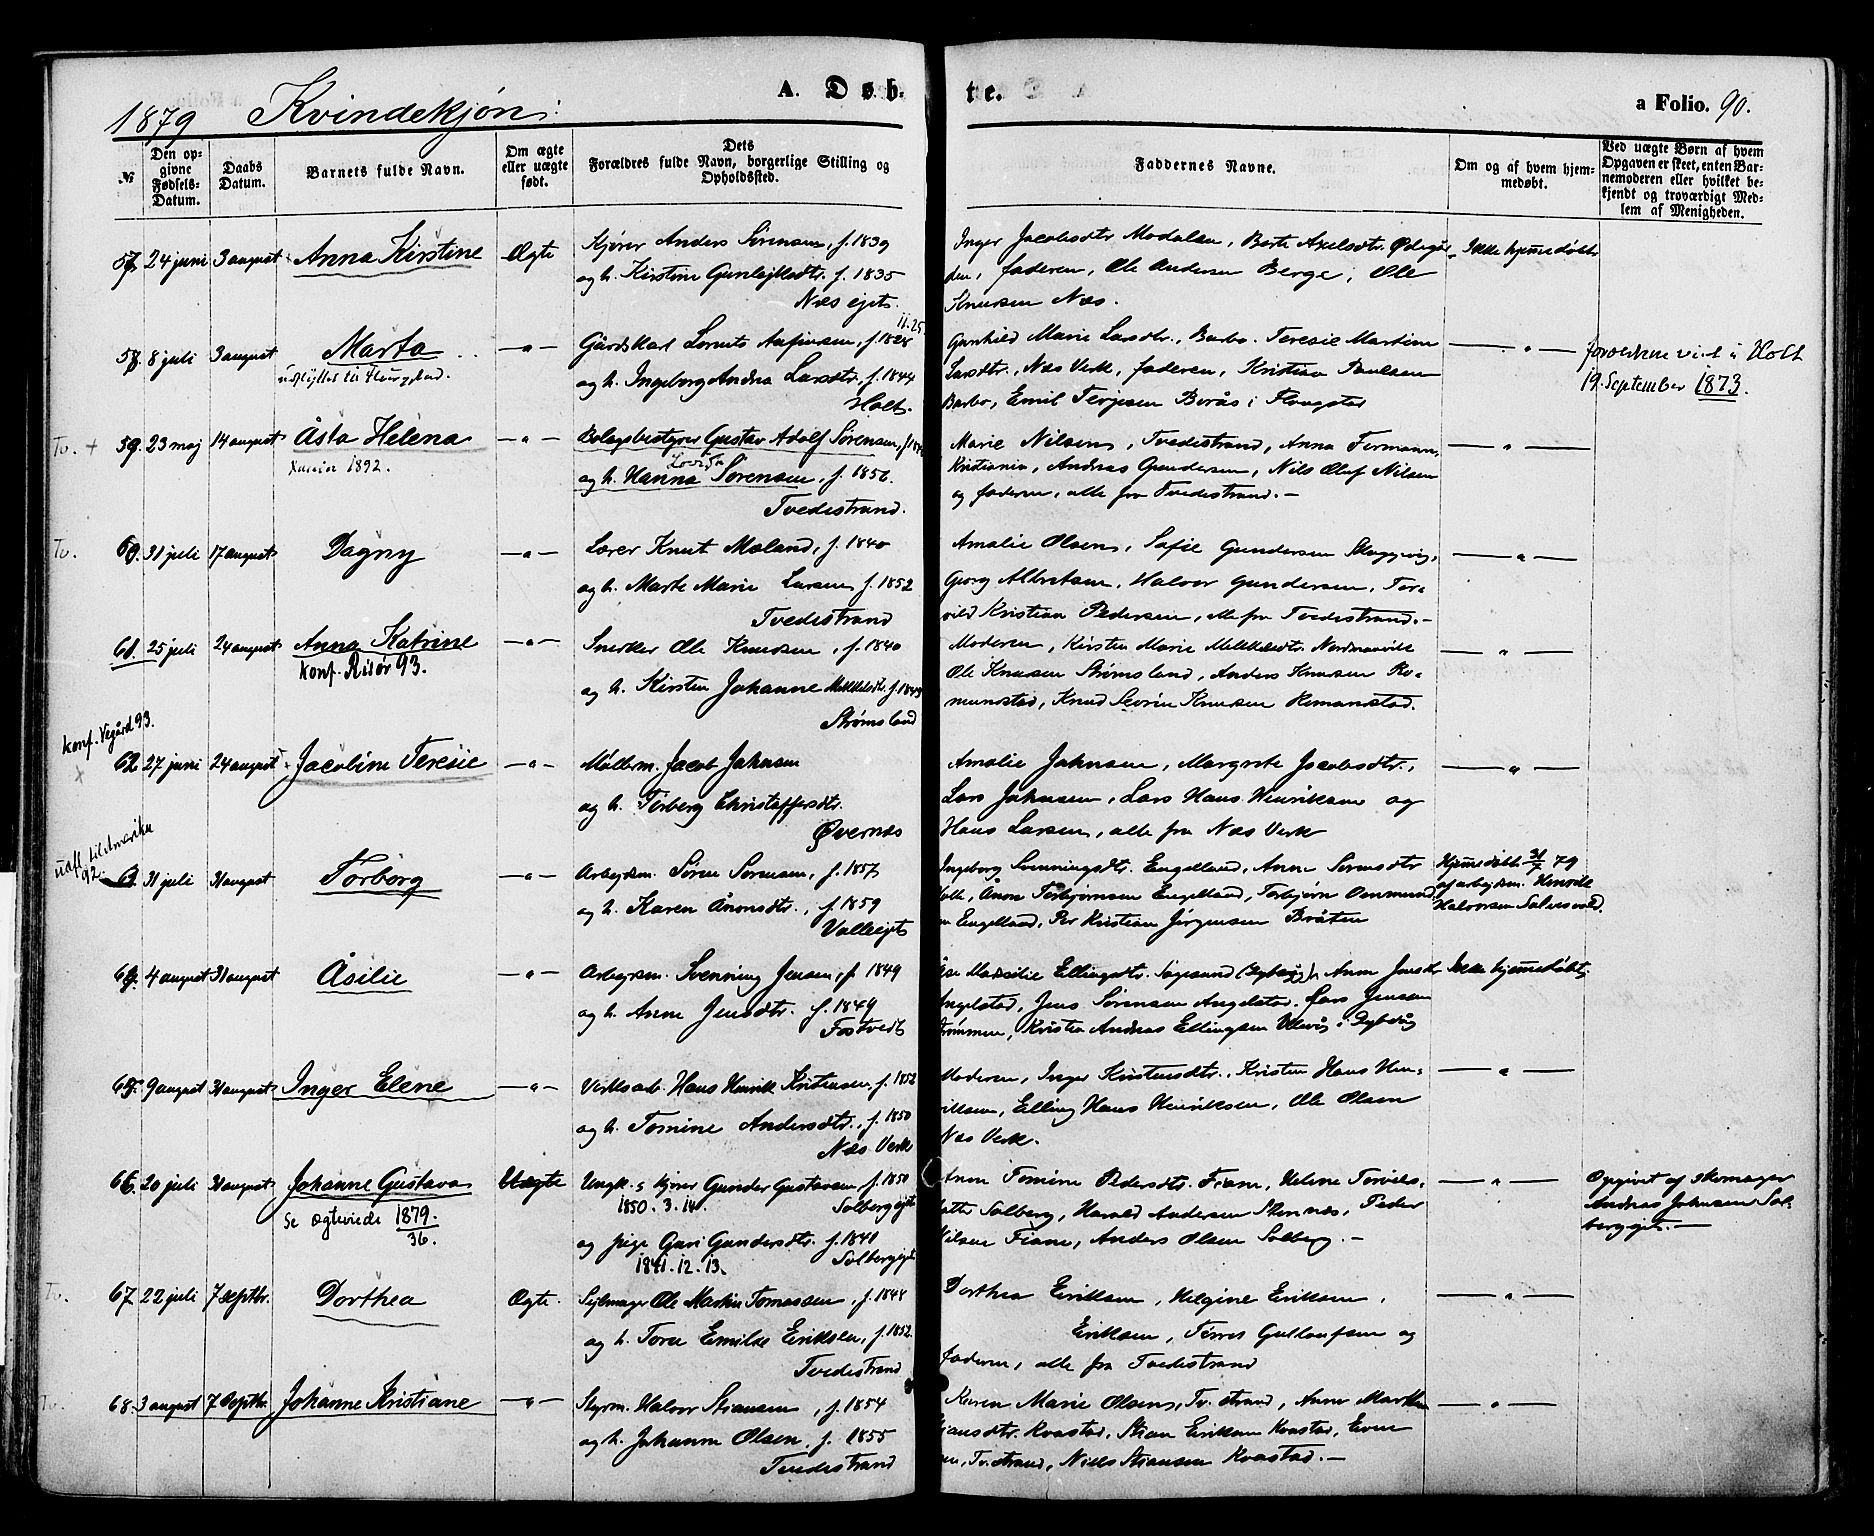 1879 Kvindekjøn:
A. Døb-
te.
a Folio. 90.
№
Den op-
givne
Fødsels-
Datum.
Daabs
Datum.
Barnets fulde Navn.
Om ægte
eller uægte
født.
Dets
Forældres fulde Navn, borgerlige Stilling og
Opholdssted.
Faddernes Navne.
Om og af hvem hjem-
medøbt.
Ved uægte Børn af hvem
Opgaven er skeet, enten Bar-
nemoderen eller hvilket be-
kjendt og troværdigt Med-
lem af Menigheden.
57. 24 juni 3 august Anna Kirstine Ægte Kjører Anders Sørensen, f. 1839
og h. Kirstine Gunlejksdtr. f. 1835
Næs ejet.
Inger Jacobsdtr Modalen, Berte Axelsdtr. Ødegår-
den, faderen, Ole Andersen Berge, Ole
Knutsen Næs.
Ikke hjemmedøbt
58. 8 juli 3 august Marta —"— Gårdskarl Lornts f. 1828
11.25.
udflyttet til Flougstad.
og h. Ingeborg Andrea Larsdtr. f. 1844
Holt.
Gunhild Marie Larsdtr., Barbo. Teresie Martine
Larsdtr., Næs Verk, faderen, Kristian Paulsen
Barbo, Emil Terjesen Borås i Flougstad
—"—
forældrene viet i Holt
19. September 1873.
Tv. + 59. 23 maj 14 august Åsta Helena —"— Bolagsbestyrer Gustav Adolf Sørensen, f.
1892.
Lovisa
og h. Hanna Sørensen, f. 1856.
Tvedestrand.
Marie Nilsen, Tvedestrand, Anna Fermann,
Kristiania, Andreas Gundersen, Nils Oluf Nilsen
og faderen, alle fra Tvedestrand.—
—"—
Tv. 60. 31 juli 17 august Dagny —"— Lærer Knut Moland, f. 1840
og h. Marte Marie Larsen, f. 1852
Tvedestrand
Amalie Olsen, Sofie Gundersen
Georg Albretsen, Halvor Gundersen, Tor-
vild Kristian Pedersen, alle fra Tvedestrand.—
—"—
61. 25 juli 24 august Anna Katrine —"— Snedker Ole Knudsen, f. 1840
konf. Risør 93.
og h. Kirsten Johanne Mikkelsdtr. f. 1843
Strømsland
Moderen, Kirsten Marie Mikkelsdtr.
Ole Knutsen Strømsland, Anders Knutsen Ro-
munstad, Knud Severin Knutsen Romunstad.
—"—
konf. Vegård 93.
×
62. 27 juni 24 august Jacobine Teresie —"— Møllerm. Jacob Johnsen
og h. Torberg Christoffersdtr.
Øvernæs
Amalie Johnsen, Margrete Jacobsdtr.,
Lars Johnsen, Lars Hans Henriksen og
Hans Larsen, alle fra Næs Verk
—"—
udfl. til Amerika
92.
63. 31 juli 31 august Torborg —"— Arbejdsm. Søren Sørensen, f. 1857
og h. Karen Ånonsdtr., f. 1859
Valleejet
Ingeborg Svenningsdtr. Engelland, Anne Sørensdtr
Valle, Ånon Torbjørnsen Engelland, Torbjørn Oenmund-
sen Engelland, Per Kristian Jørgensen Bråten
Hjemmedøbt 31/7 79
af arbejdsm. Henrik
Halvorsen Solensvold.
64. 4 august 31 august Åsilie —"— Arbejdsm. Svenning Jensen, f. 1849
og h. Anne Jensdtr. f. 1849
Fostvedt
Åse Marsilie Ellingsdtr. Sagesund (Dybvåg), Anne Jensdtr
Angelstad, Jens Sørensen Angelstad, Lars Jensen
Strømmen, Kristen Andreas Ellingsen Ulevåg i Dybvåg
Ikke hjemmedøbt.
65. 9 august 31 august Inger Elene —"— Verksarb. Hans Henrik Kristensen, f. 1852
og h. Tomine Andersdtr., f. 1850
Næs Verk
Moderen, Inger Kristensdtr., Kristen Hans Hen-
riksen, Elling Hans Henriksen, Ole Olsen
Næs Verk.
—"—
66. 20 juli 31 august Johanne Gustava Uægte Ungk. s Kjører Gunder Gustavsen f. 1850
1850. 3. 14. Solbergejet
se ægteviede 1879.
36.
og pige Guri Gundersdtr. f. 1841
1841. 12. 13. Solbergejet
Anne Tomine Pedersdtr. Fiane, Helene Torvels-
datter Solberg, Harald Andersen Stennæs, Peder
Nilsen Fiane, Anders Olsen Solberg.—
—"—
Opgivet af skomager
Andreas Johnsen Sol-
bergejet.—
Tv. 67. 22 juli 7 septbr. Dorthea Ægte. Sejlmager Ole Martin Tomassen, f. 1848
og h. Tora Emilie Eriksen, f. 1852.
Tvedestrand
Dorthea Eriksen, Helgine Eriksen,
Eriksen, Tørres Gulloufsen og
faderen, alle fra Tvedestrand
—"—
Tv. 68. 3 august 7 Septbr. Johanne Kristiane —"— Styrm. Halvor Stiansen, f. 1854
og h. Johanne Olsen, f. 1855
Tvedestrand
Karen Marie Olsen, Tv.strand, Anne Marthe
Stiansdtr. Kvastad, Stian Eriksen Kvastad, Even
Tv.strand, Niels Stiansen Kvastad.—
—"—